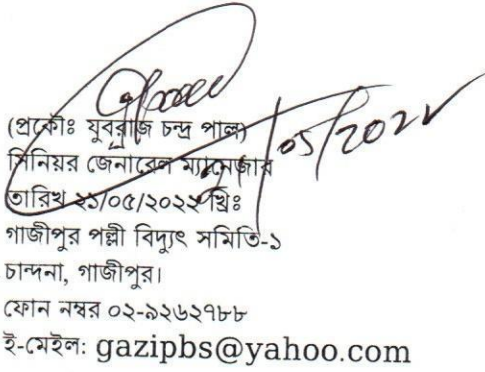 (প্রকৌঃ যুবরাজ চন্দ্র পাল)
সিনিয়র জেনারেল ম্যানেজার
তারিখ ২১/০৫/২০২২ খ্রিঃ
গাজীপুর পল্লী বিদ্যুৎ সমিতি-১
চান্দনা, গাজীপুর।
ফোন নম্বর ০২-৯২৬২৭৮৮
ই-মেইল: gazipbs@yahoo.com